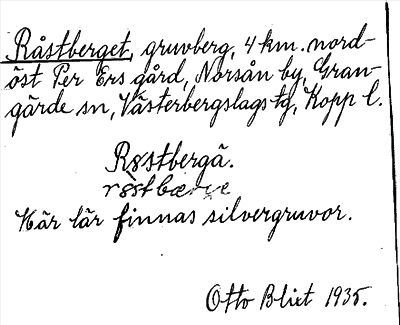 Råstberget, gruvberg, 4 km. nord-
öst Per Ers gård, Norsån by, Gran-
gärde sn, Västerbergslags tg, Kopp l.
Røstbergä.
Här lär finnas silvergruvor.
Otto Blixt 1935.